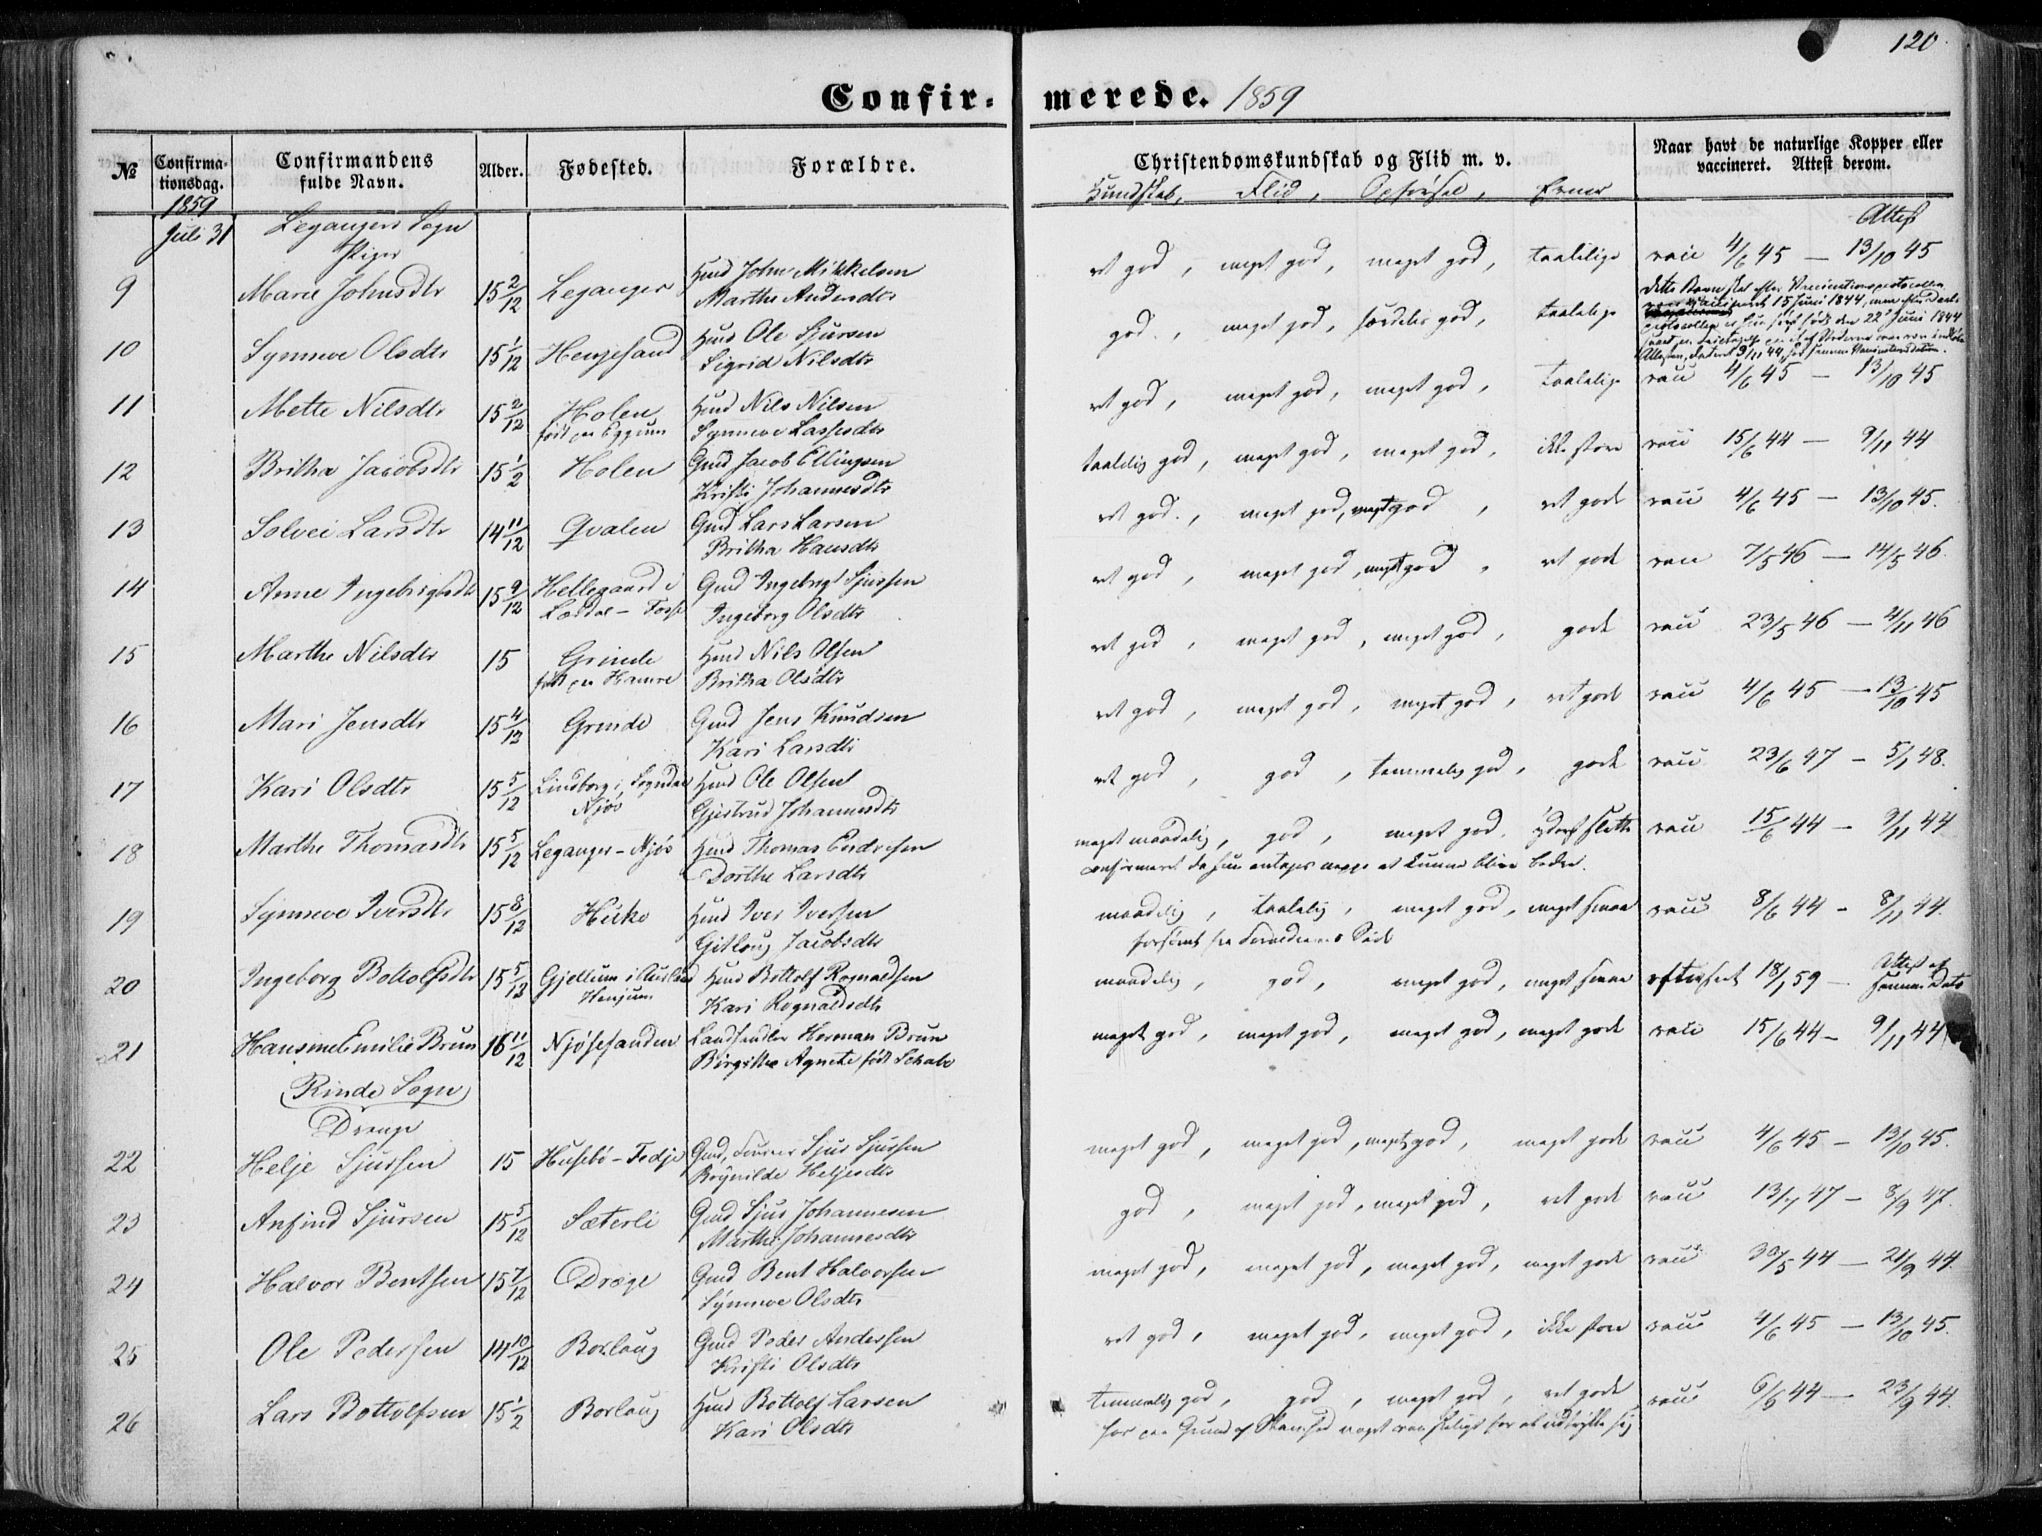 120
Confir-merede. 1859
№ Confirmationsdag. Confirmandens fulde Navn. Alder. Fødested. Forældre. Christendomskundskab og Flid m. v. Naar havt de naturlige Kopper eller vaccineret. Attest derom.
Kundskab, Flid, Opførsel, Evner
1859
Juli 31 Leganger Sogn
Piger
Attest
9 Marie Johnsdtr 15 2/12 Leganger Hmd John Mikkelsen ret god, meget god, meget god, taalelige vacc 4/6 45 — 13/10 45
Marthe Andersdtr
10 Synneve Olsdtr 15 1/12 Henjesand Hmd Ole Sjursen god, meget god, særdeles god, taalelige
Sigrid Nilsdtr
15 Juni 1844
22 Juni 1844
11 Mette Nilsdtr 15 2/12 Holen Hmd Nils Nilsen ret god, meget god, meget god, taalelige vacc 4/6 45 — 13/10 45
født paa Eggum Synneve Lassesdtr
12 Britha Jacobsdtr 15 1/2 Holen Gmd Jacob Ellingsen taalelig god, meget god, meget god, ikke store vacc 15/6 44 — 9/11 44
Kristi Johannesdtr
13 Solvei Larsdtr 14 11/12 Qvalen Gmd Lars Larsen ret god, meget god, meget god, ret gode vacc 4/6 45 — 13/10 45.
Britha Hansdtr
14 Anne Ingebrigtsdtr 15 9/12 Hellegaard i Gmd Ingebrigt Sjursen ret god, meget god, meget god, ret gode vacc 7/5 46 — 14/5 46.
Lærdal — Ingeborg Olsdtr
15 Marthe Nilsdtr 15 Grinde Hmd Nils Olsen ret god, meget god, meget god, gode vacc 23/5 46 — 4/11 46
født paa Hamre Britha Olsdtr
16 Mari Jensdtr 15 4/12 Grinde Gmd Jens Knudsen ret god, meget god, meget god, ret gode vacc 4/6 45 — 13/10 45
Kari Larsdtr
17 Kari Olsdtr 15 5/12 Lindborg i Sogndal Hmd Ole Olsen ret god, god, temmelig god, gode vacc 23/6 47 — 5/1 48.
Njøs Gjertrud Johannesdtr
18 Marthe Thomasdtr 15 5/12 Leganger — Njøs Hmd Thomas Endresen meget maadelig, god, meget god, yderst slette vacc 15/6 44 — 9/11 44
Dorthe Larsdtr confirmeret da hun antages neppe at kunne blive bedre.
19 Synneve Iversdtr 15 8/12 Huke Hmd Iver Iversen maadelig, taalelig, meget god, meget smaa vacc 8/6 44 — 8/11 44.
Gitlaug Jacobsdtr forsømt fra Forældrenes Side
20 Ingeborg Bottolfsdtr 15 5/12 Gjellum i Aurland Hmd Bottolf Rognaldsen maadelig, god, meget god, meget smaa 18/1 59 — Attest af
Henjum Kari Rognaldsdtr samme Dato
21 Hansine Emilie Brun 16 11/12 Njøsesanden Landhandler Herman Brun meget god, meget god, meget god, meget gode vacc 15/6 44 — 9/11 44
Birgithe Agnete født
Rinde Sogn
Drenge
22 Helje Sjursen 15 Husebø — Gmd, Sjur Sjursen meget god, meget god, meget god, meget gode vacc 4/6 45 — 13/10 45.
Røgnilde Heljesdtr
23 Anfind Sjursen 15 5/12 Sæterli Gmd Sjur Johannesen god, meget god, meget god, ret gode vacc 13/7 47 — 8/9 47.
Marthe Johannesdtr
24 Halvor Bentsen 15 7/12 Dræge Gmd Bent Halvorsen meget god, meget god, meget god, meget gode vacc 30/5 44 — 21/9 44.
Synneve Olsdtr
25 Ole Pedersen 14 10/12 Borlaug Gmd Peder Andersen ret god, meget god, meget god, ikke store vacc 4/6 45 — 13/10 45.
Kristi Olsdtr
26 Lars Bottolfsen 15 1/2 Borlaug Hmd Bottolf Larsen temmelig god, god, meget god, ret gode vacc 6/6 44 — 23/9 44.
Kari Olsdtr har paa Grund af noget vanskeligt for at udtrykke sig